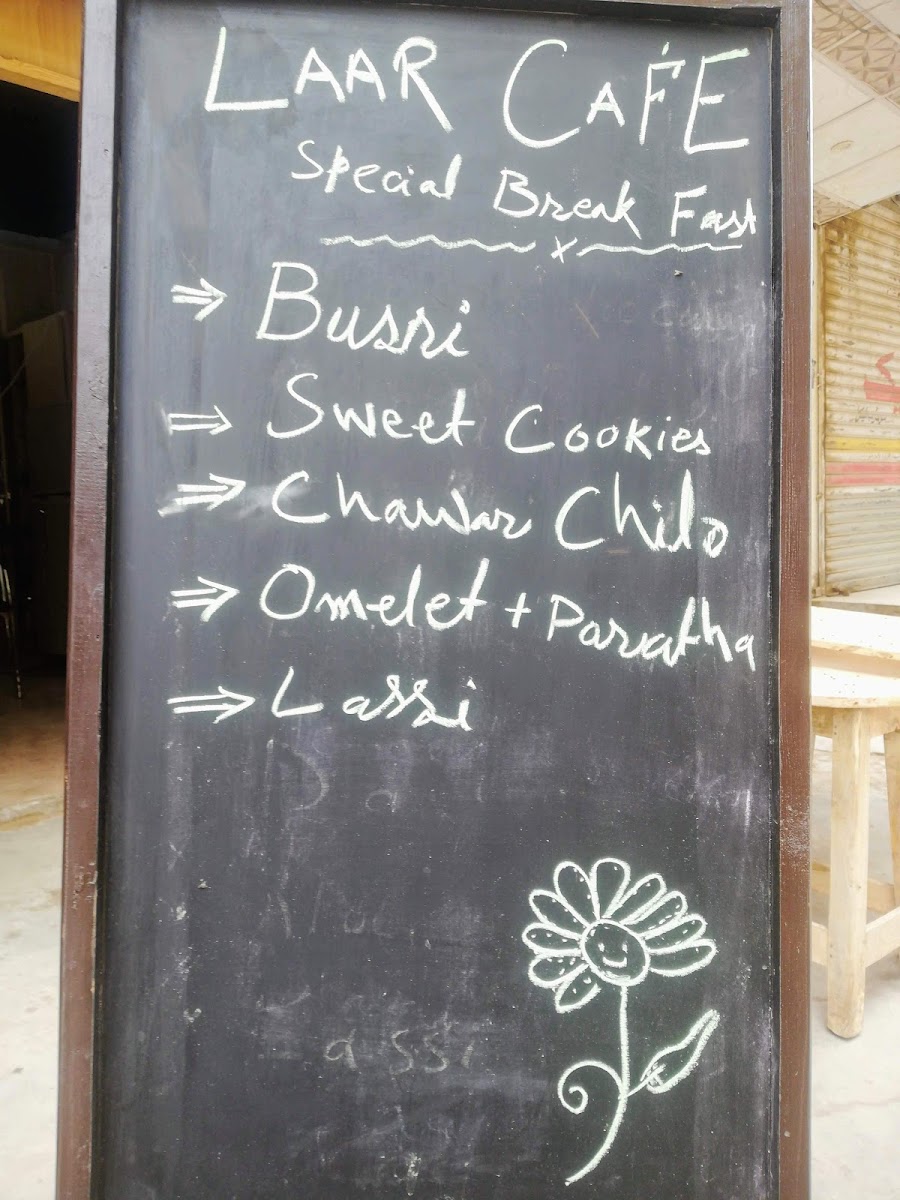 LAAR CAFE
Special Break Fast
⇒ Busri
⇒ Sweet Cookies
⇒ Chawar Chilo
⇒ Omelet + Paratha
⇒ Lassi
assi